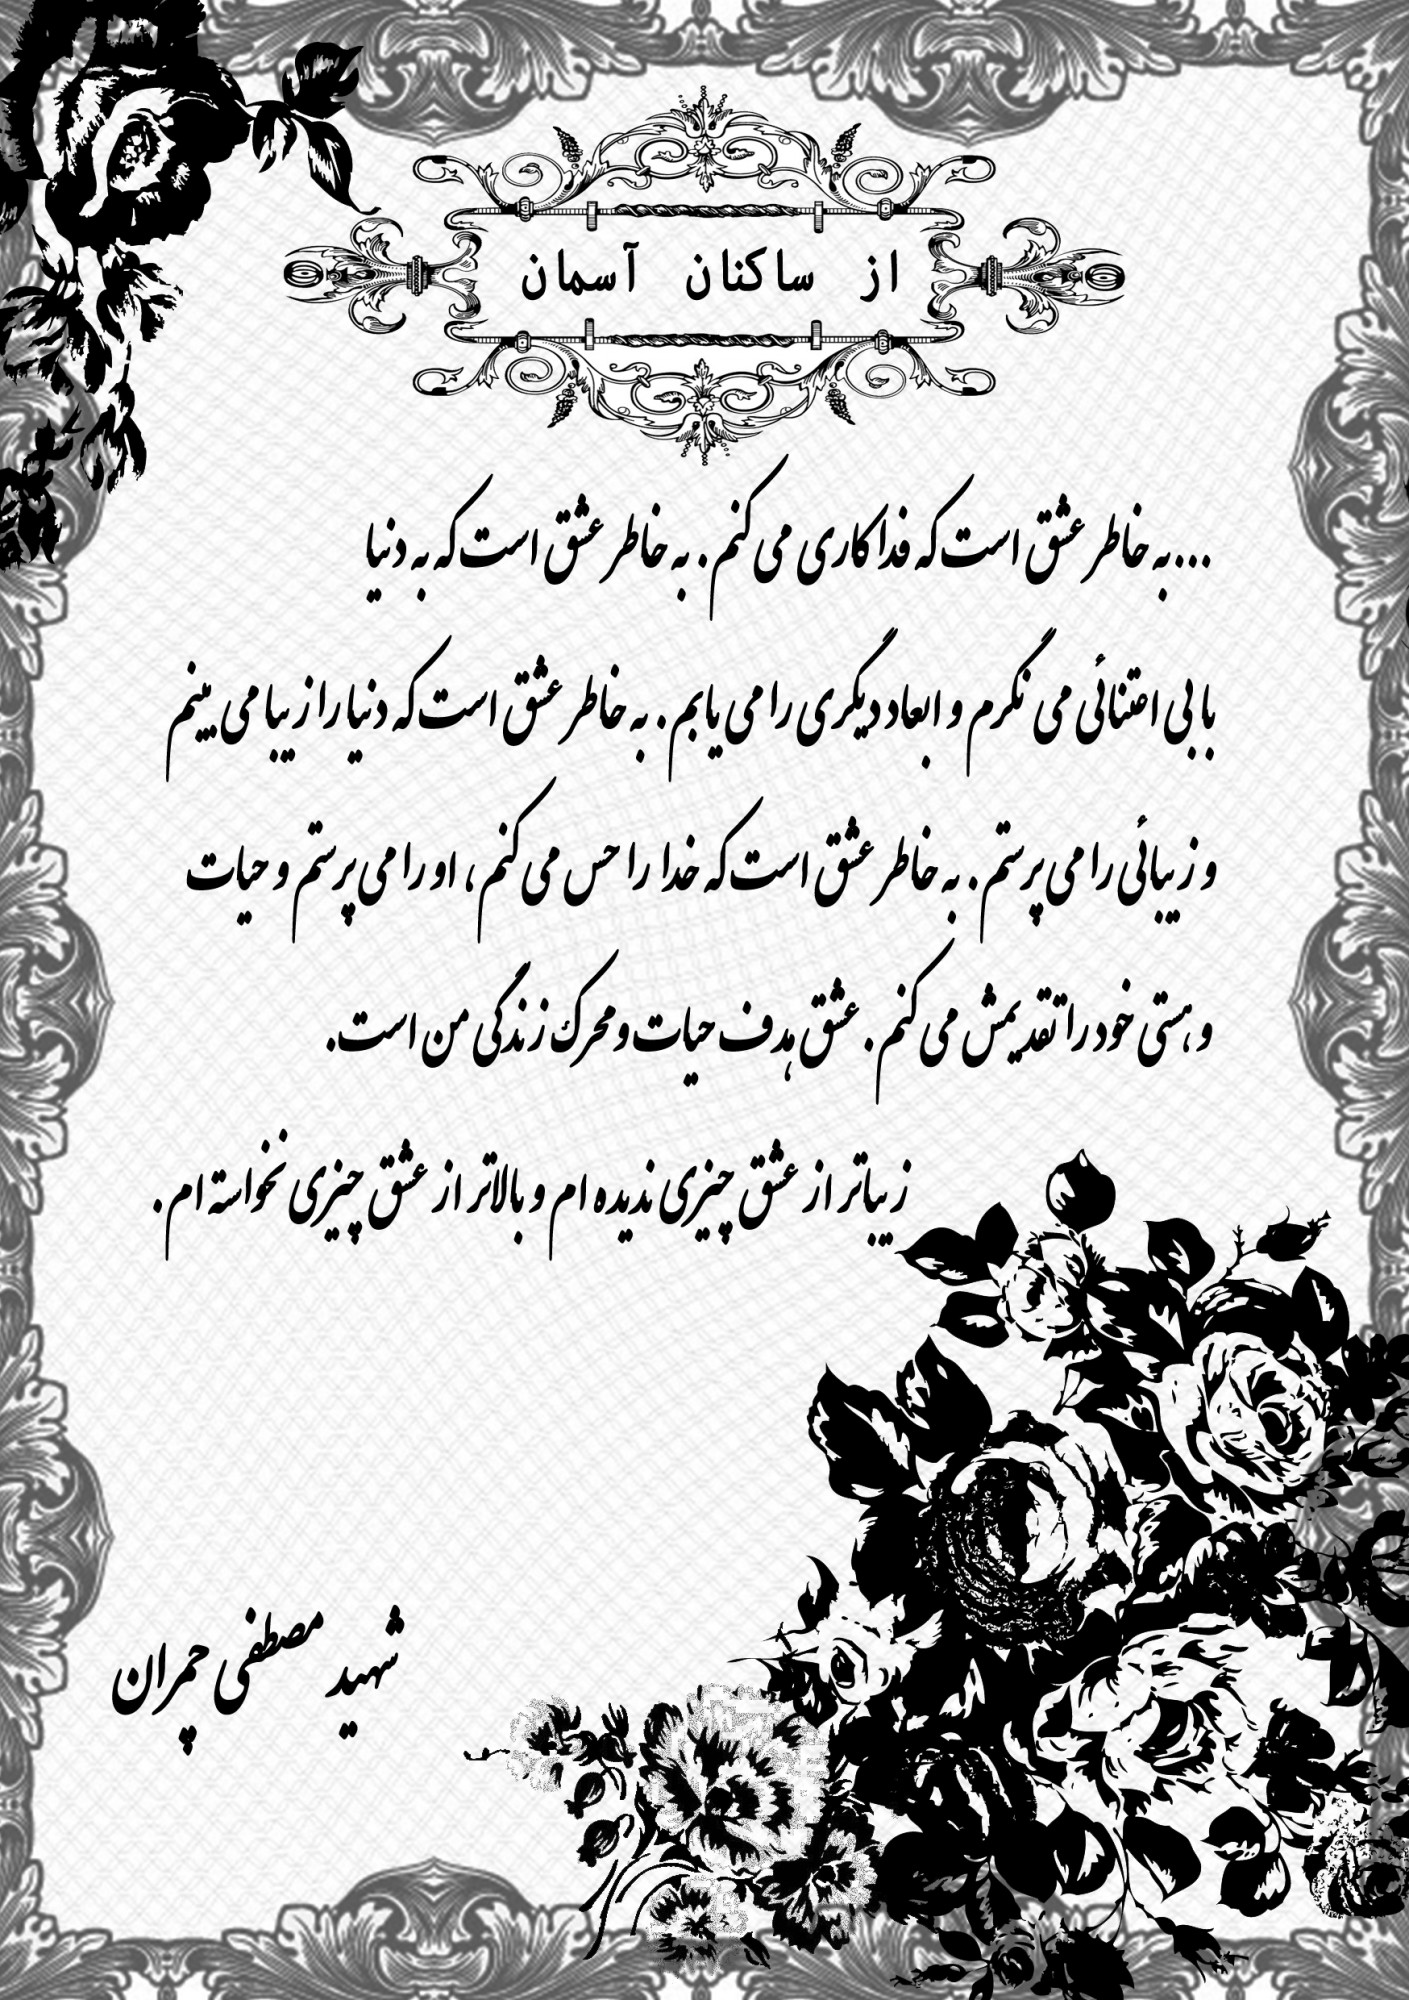 از ساکنان آسمان
...به خاطر عشق است که فداکاری می کنم. به خاطر عشق است که به دنیا
با بی اعتنائی می نگرم و ابعاد دیگری را می یابم. به خاطر عشق است که دنیا را زیبا می بینم
و زیبائی را می پرستم. به خاطر عشق است که خدا را حس می کنم، او را می پرستم و حیات
و هستی خود را تقدیمش می کنم. عشق هدف حیات و محرک زندگی من است.
زیباتر از عشق چیزی ندیده ام و بالاتر از عشق چیزی نخواسته ام.
شهید مصطفی چمران